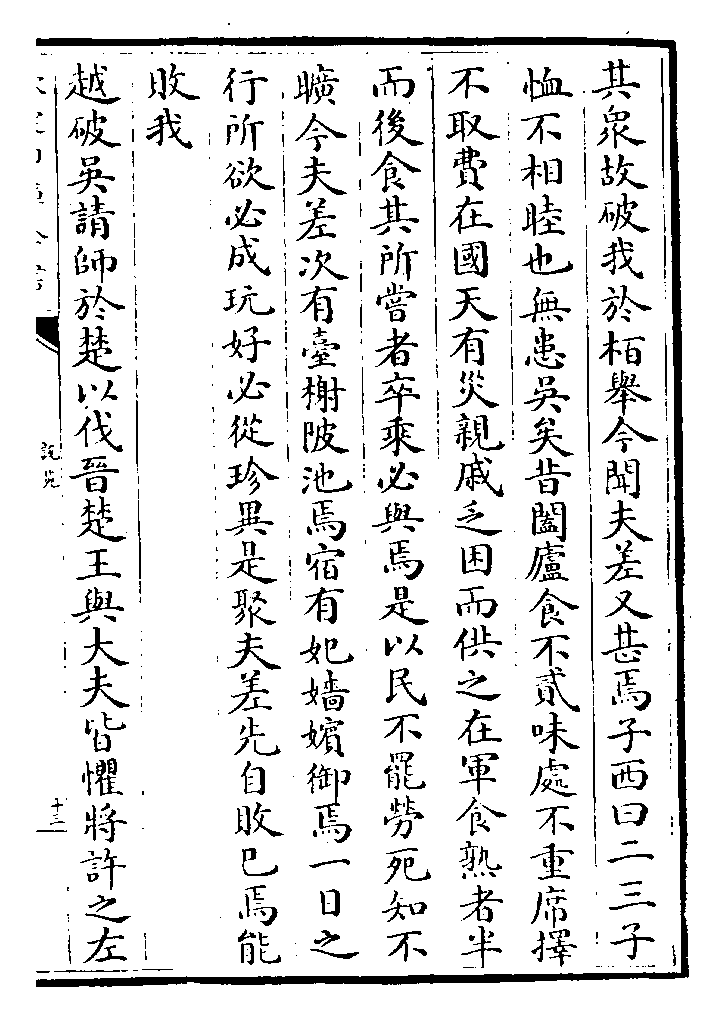 其衆故破我於栢舉今聞夫差又甚焉子西曰二三子
恤不相睦也無患吳矣昔闔廬食不貳味處不重席擇
不取費在國天有災親戚乏困而供之在軍食熟者半
而後食其所嘗者卒乘必與焉是以民不罷勞死知不
曠今夫差次有臺榭陂池焉宿有妃嬙嬪御焉一日之
行所欲必成玩好必從珍異是聚夫差先自敗已焉能
敗我
越破吳請師於楚以伐晉楚王與大夫皆懼將許之左
説苑
十三